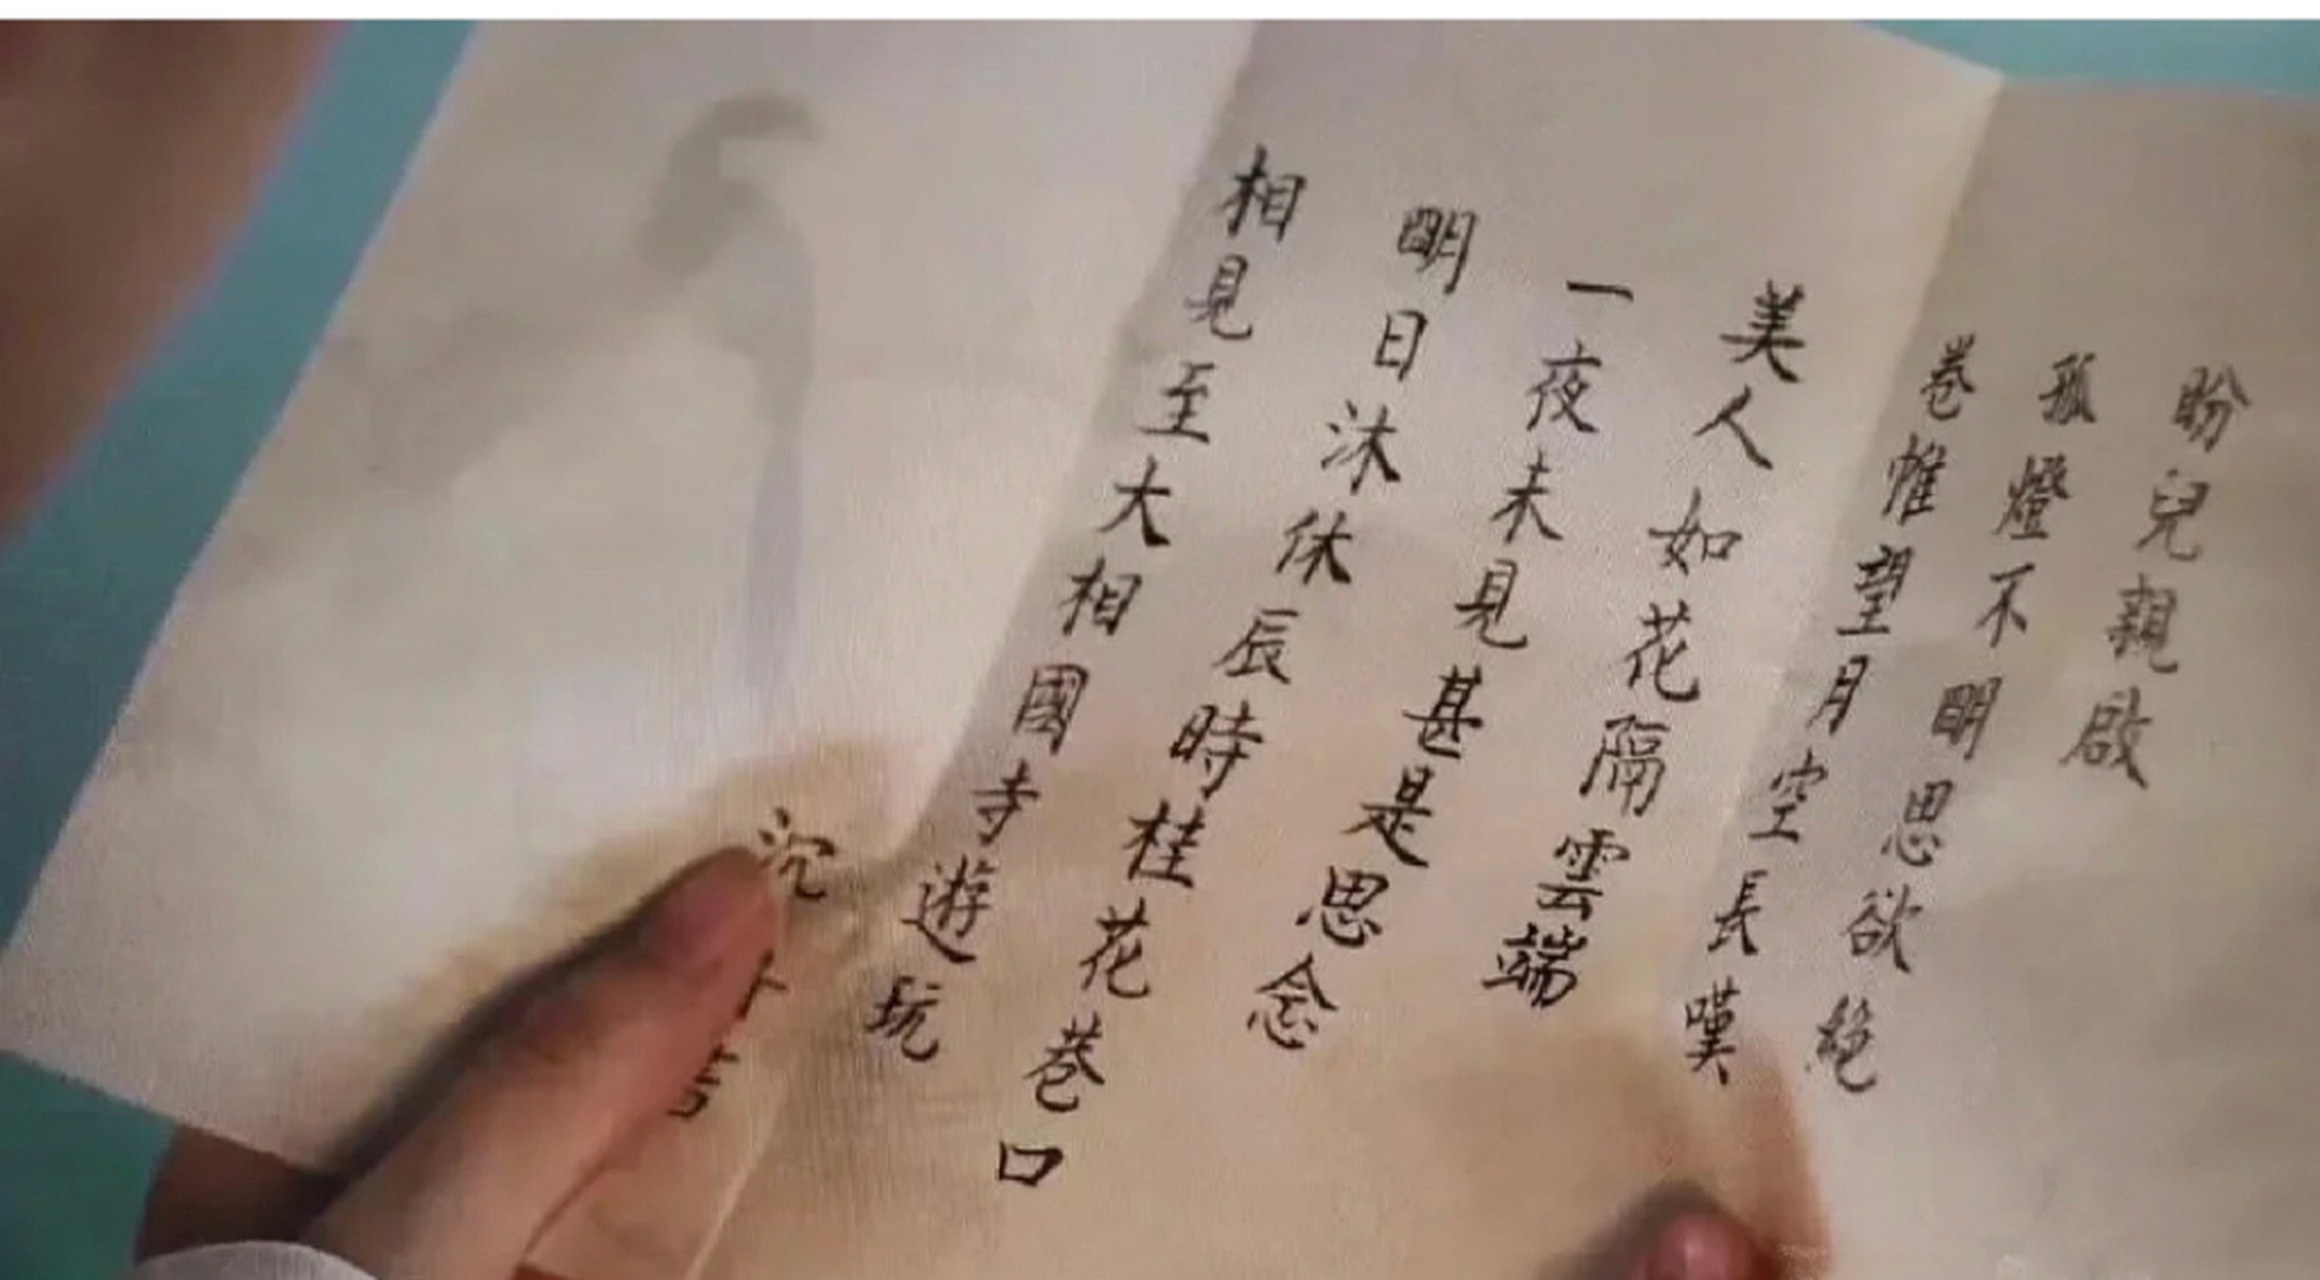 盼兒親啟
孤燈不朙思欲絕
卷帷望月空長嘆
美人如花隔雲端
一夜未見甚是思念
朙日沐休辰時桂花巷口
相見至大相國寺遊玩
沉